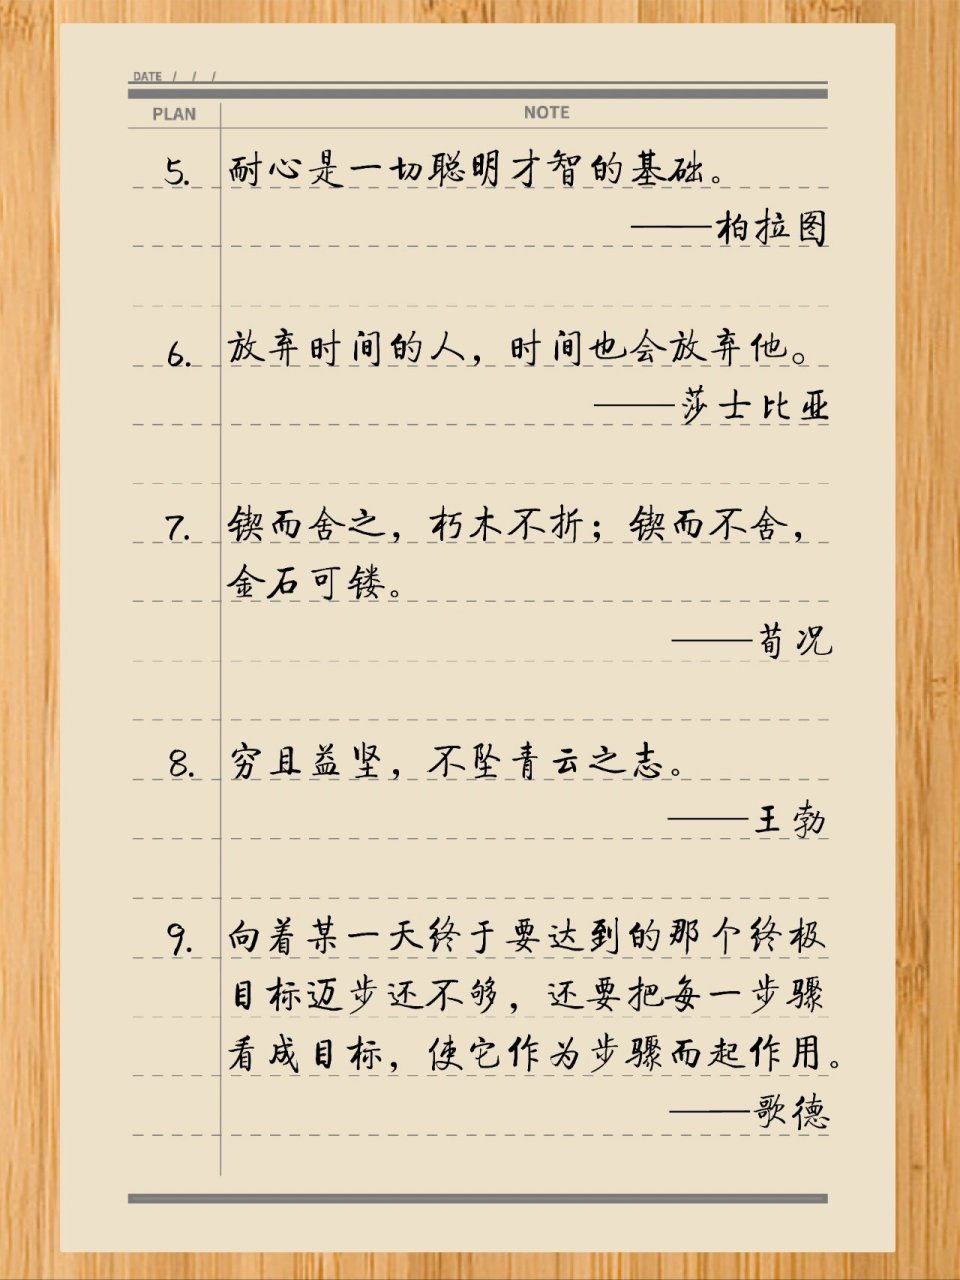 DATE / / /
PLAN NOTE
5. 耐心是一切聪明才智的基础。
——柏拉图
6. 放弃时间的人，时间也会放弃他。
——莎士比亚
7. 锲而舍之，朽木不折；锲而不舍，
金石可镂。
——荀况
8. 穷且益坚，不坠青云之志。
——王勃
9. 向着某一天终于要达到的那个终极
目标迈步还不够，还要把每一步骤
看成目标，使它作为步骤而起作用。
——歌德